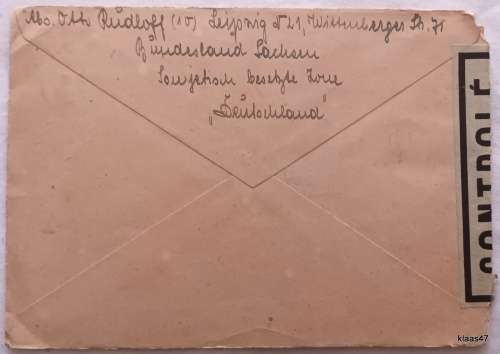 Abs. Otto Rudloff (10) Leipzig N 21, Wittenberger Str. 71
Bundesland Sachsen
Sowjetisch besetzte Zone
„Deutschland"
CONTROLÉ
klaas47